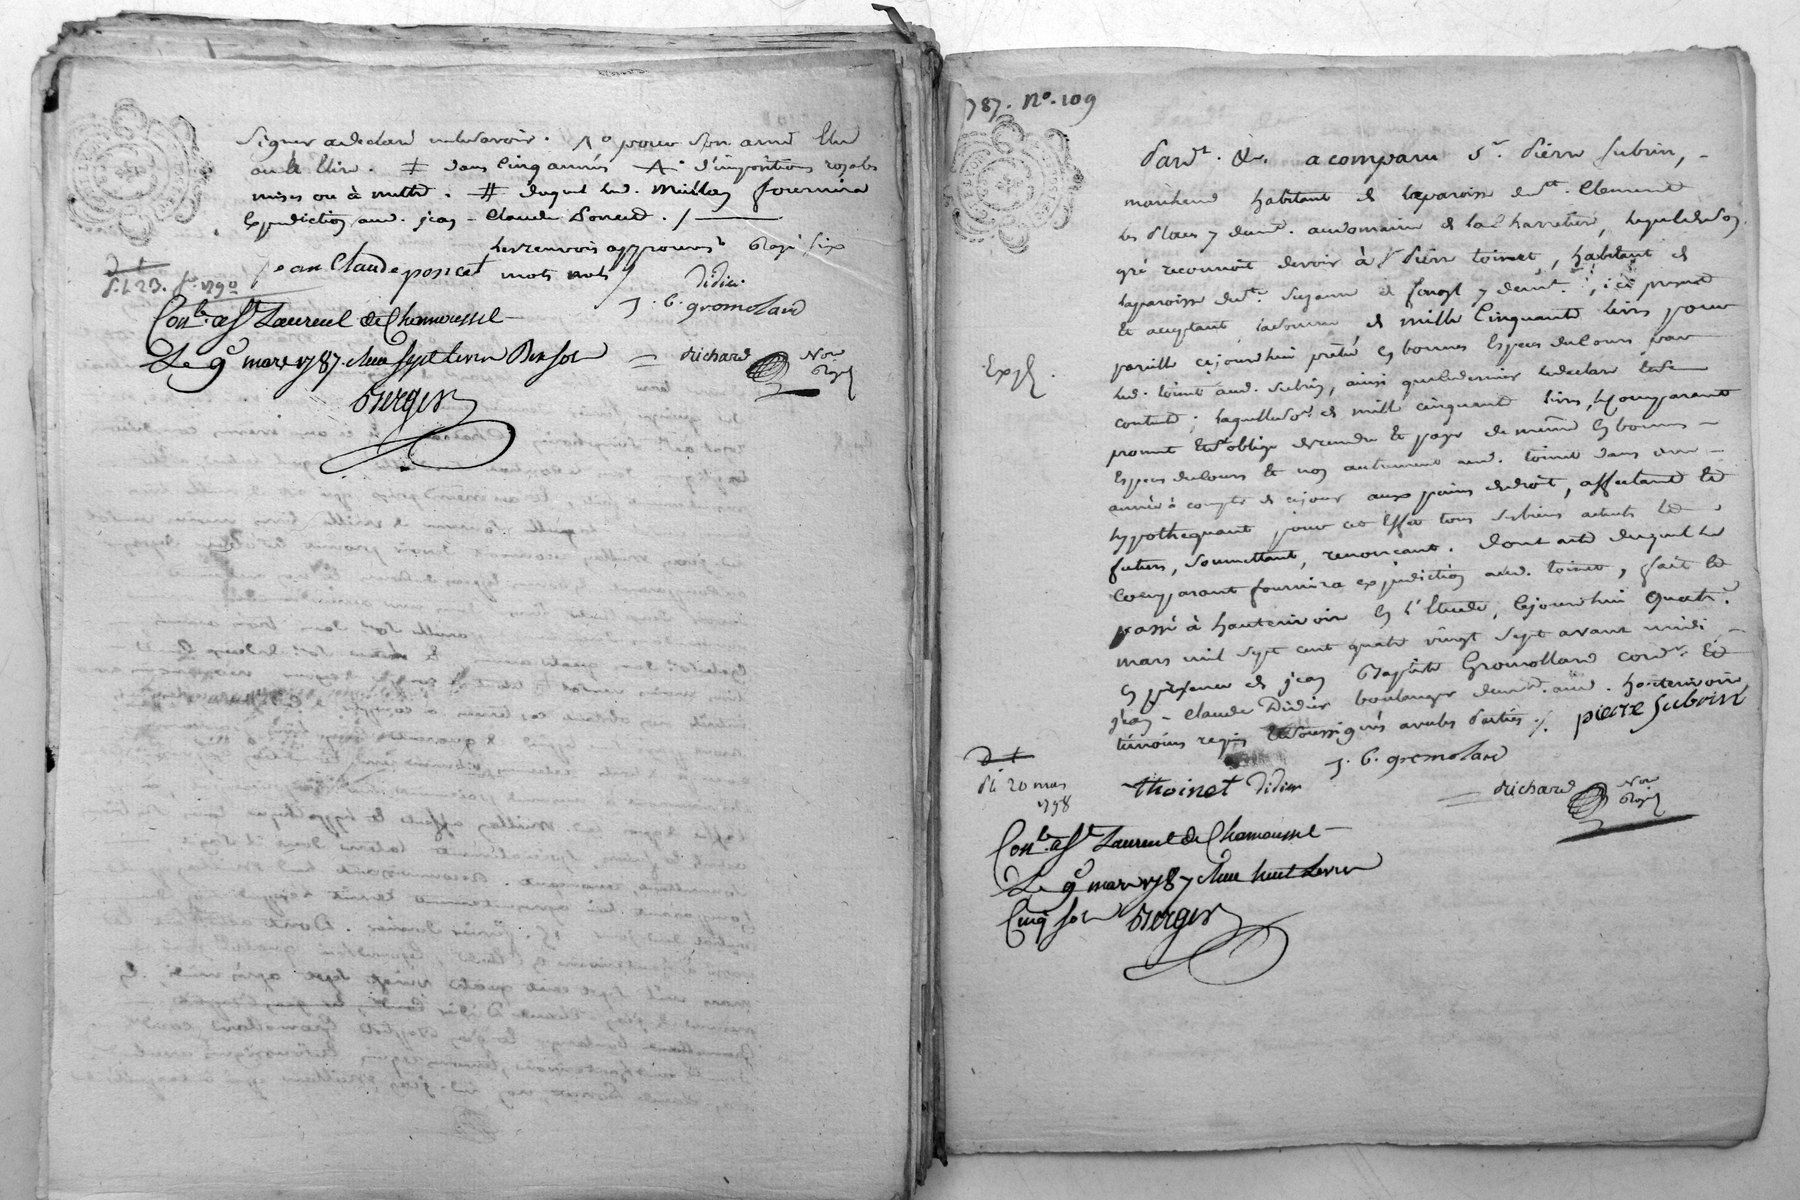 signer a declaré ne le savoir. 1o pour son ami élu
ou à élire. ⧧ dans cinq années d'impositions royales
mises ou à mettre. # duquel led. Millan fournira
expedition aud. jean - Claude Poncet. /
les renvois approuvés rayé six
mots nuls /
jean Claude poncet
Didier
J. B. gromolard
d t
1790
Conlé. à St Laurent de Chamousset
Le 9e mars 1787 Reçu sept livres dix sols
Berger
Richard Nore
Royal
787. No. 109
Pardt. &c. a comparu Sr. Pierre Subrin, -
marchand habitant de la paroisse de St. Clement
les Places y demt. au domaine de la Charretier, lequel de son
gré reconnoit devoir à Sr Pierre toinet, habitant de
la paroisse de Ste. y demt. ici present
et acceptant, la somme de mille cinquante livres pour
pareille cejourdhui prêtée en bonnes especes de cours par
led. toinet aud. Subrin, ainsi que le dernier le declare et s'en
contente; laquelle so. de mille cinquante livres, le comparant
promet et s'oblige de rendre et payer de même en bonnes -
especes de cours et non autrement aud. toinet dans une -
année à compter de ce jour aux peines de droit, affectant et
hypothequant pour cet effet tous ses biens actuels et
futurs, soumettant, renonçant. Dont acte duquel le
comparant fournira expedition aud. toinet, fait et
passé à hauterivoire en l'étude, cejourdhui quatre
mars mil sept cent quatre vingt sept avant midi, -
en présence de jean Baptiste Gromollard cordr. et
jean - Claude Didier boulanger demt. aud. hauterivoire
témoins requis et soussignés avec les parties /. pierre Subrin
Expé.
J. B. gromolard
thoinet Didier
Richard Nore
Royal
d t
20 mars
1798
Conlé. à St Laurent de Chamousset
Le 9e mars 1787 Reçu huit livres
Cinq sols Berger